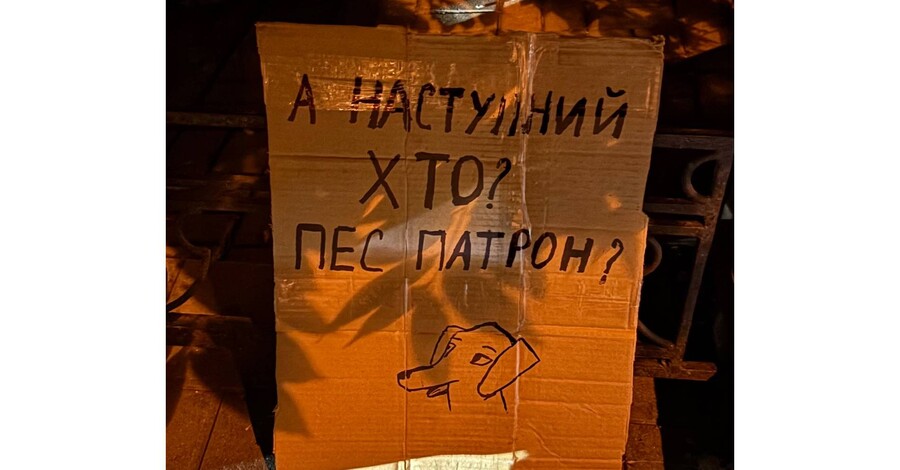 А НАСТУПНИЙ
ХТО?
ПЕС ПАТРОН?